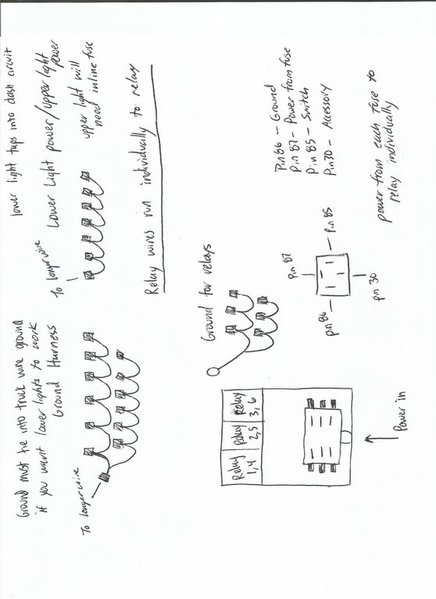 Ground must tie into truck wire ground
if you want lower lights to work
Ground Harness
To longer wire
lower light taps into dash circuit
Lower Light power/upper light
power
upper light will
need inline fuse
To longer wire
Relay wires run individually to relay
Ground for relays
Pin 86 - Ground
Pin 87 - Power from fuse
Pin 85 - Switch
Pin 30 - Accessory
Pin 87
Pin 85
Pin 86
Pin 30
power from each fuse to
relay individually
Relay
1,4
Relay
2,5
Relay
3,6
Power in